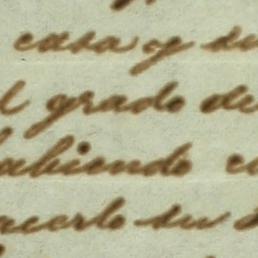 casa y su
grado de
habiendo
hacerlo su